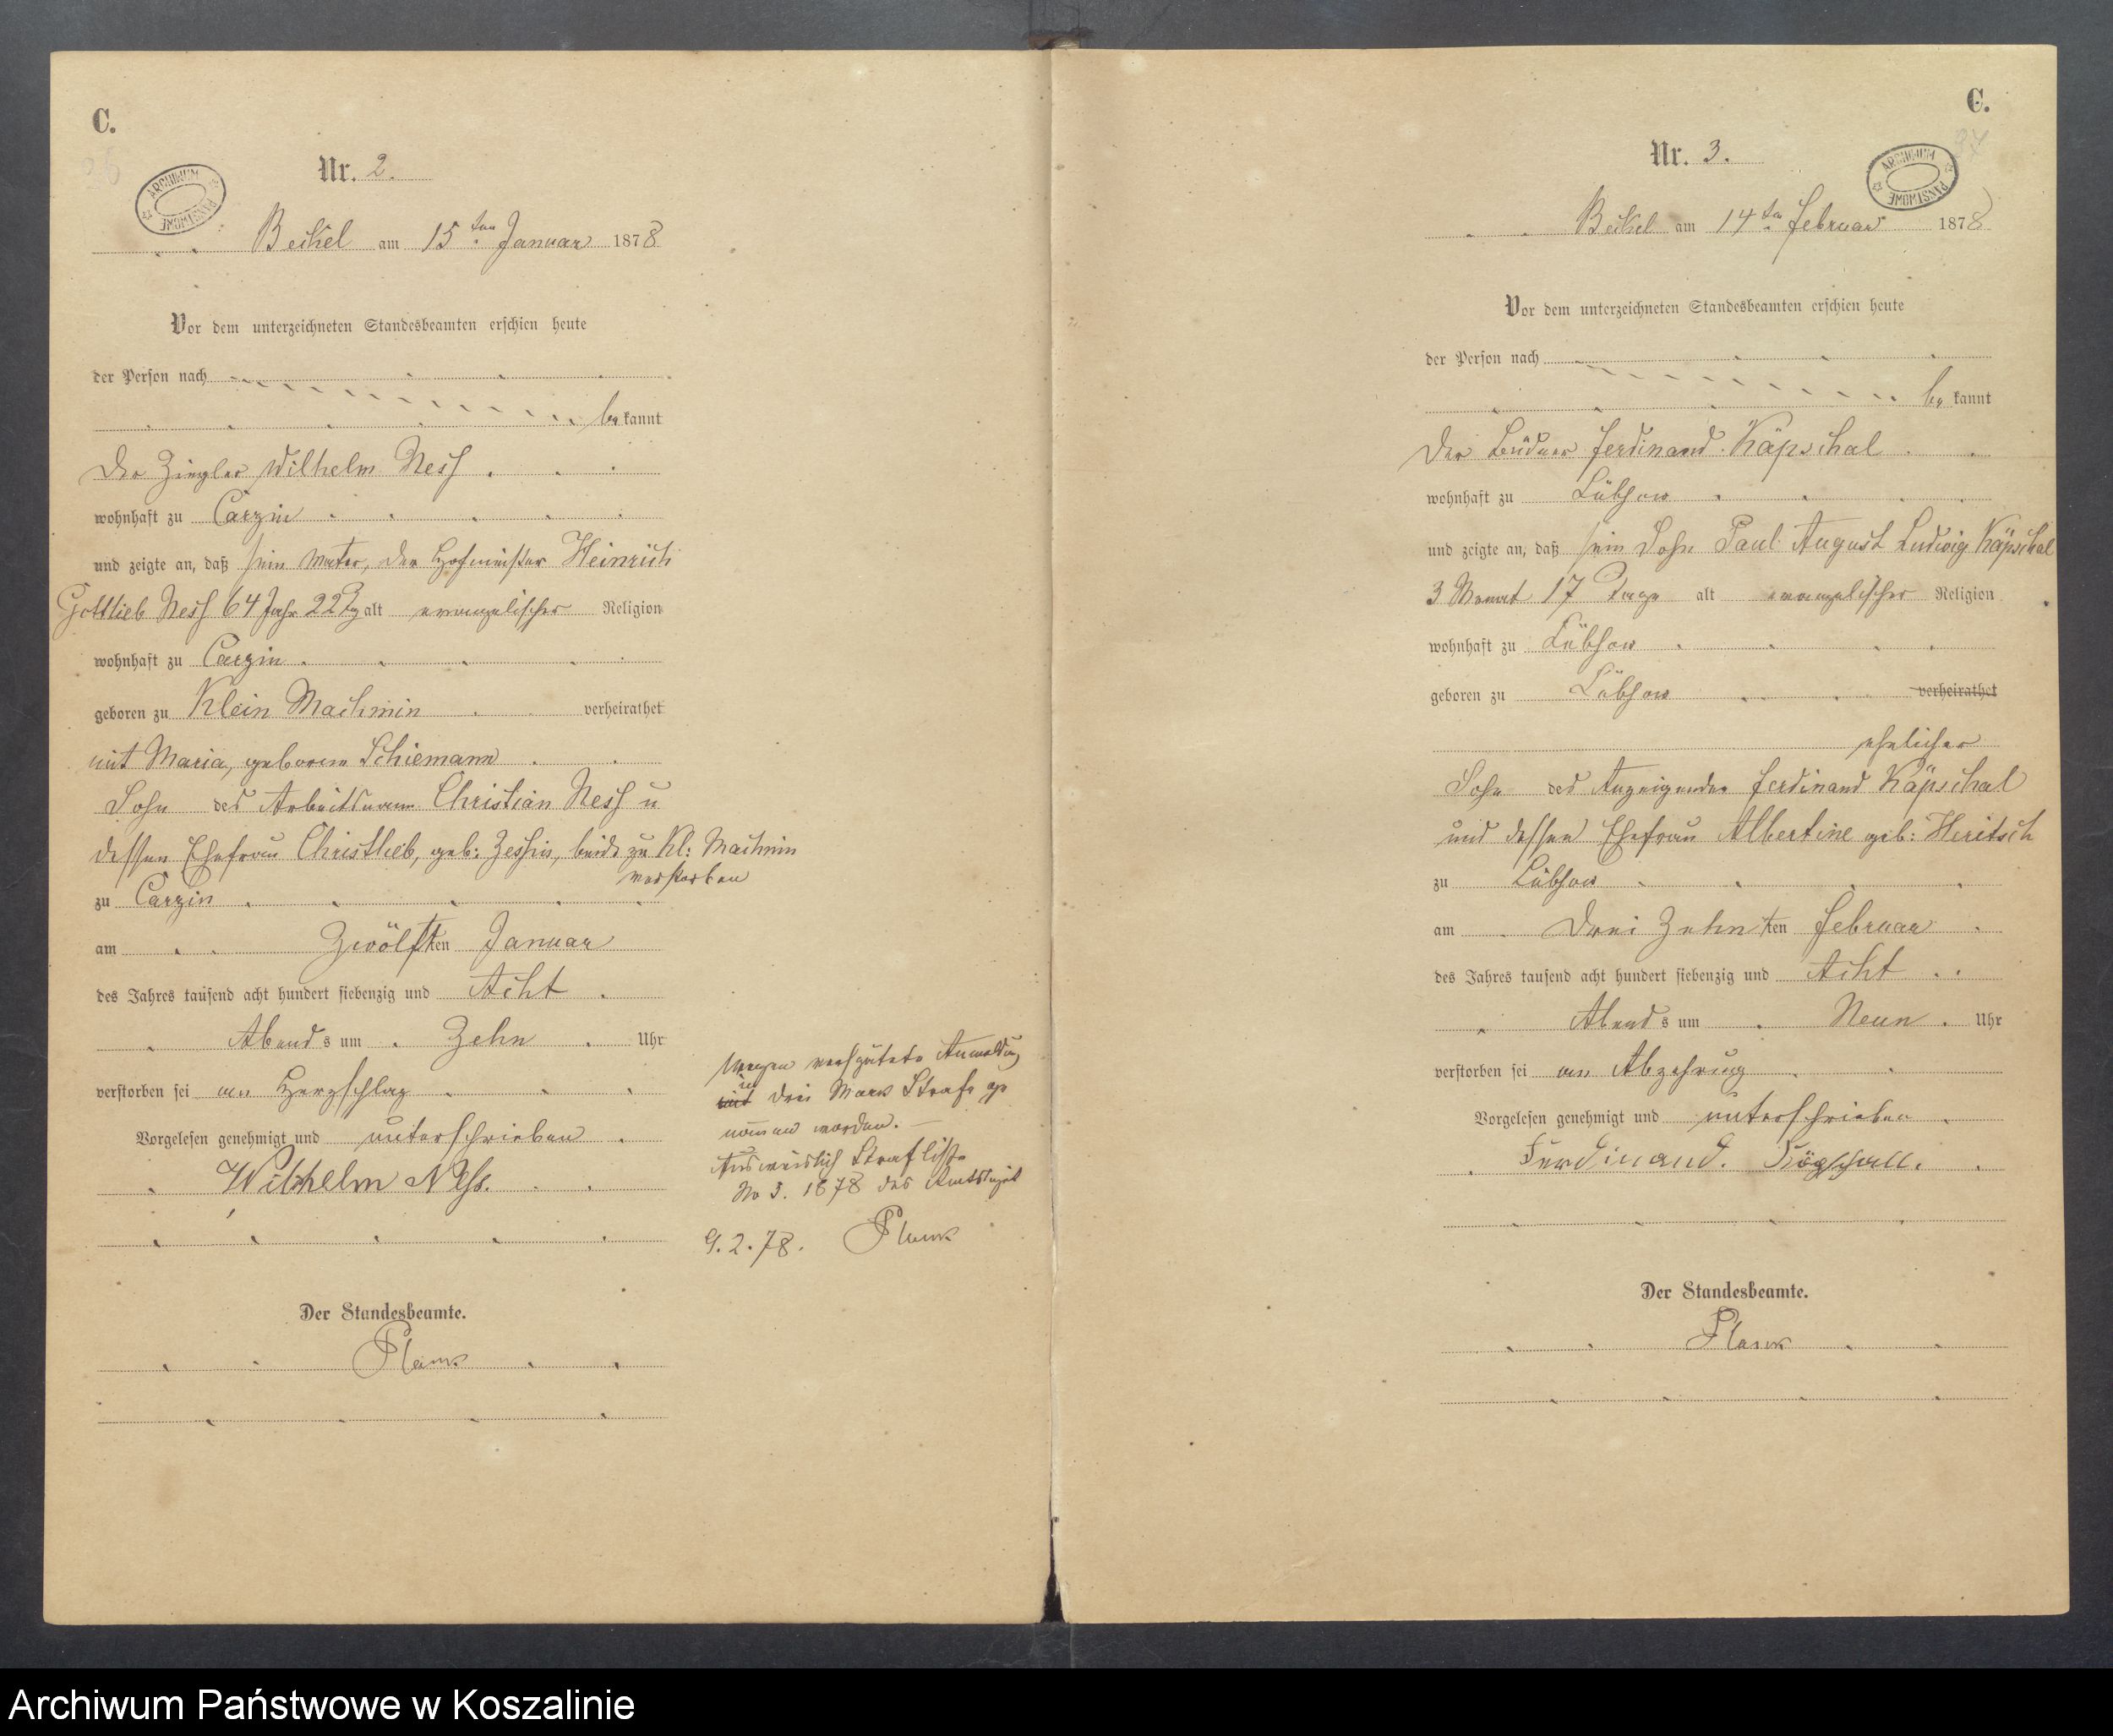 C.
Nr. 2.
ARCHIWUM PAŃSTWOWE
Beckel am 15ten Januar 1878
Vor dem unterzeichneten Standesbeamten erschien heute
der Person nach
be kannt
Der Ziegler Wilhelm Ness
wohnhaft zu Carzin
und zeigte an, daß sein Vater, der Hofmeister Heinrich
Gottlieb Ness 64 Jahr 22 Tg alt evangelischer Religion
wohnhaft zu Carzin
geboren zu Klein Machmin verheirathet
mit Maria, geborene Schiemann
Sohn des Arbeitsmann Christian Ness u
dessen Ehefrau Christlieb, geb: beide zu Kl: Machmin
verstorben
zu Carzin
am Zwölften Januar
des Jahres tausend acht hundert siebenzig und Acht
Abends um Zehn Uhr
verstorben sei am Herzschlag
Vorgelesen genehmigt und unterschrieben
Wilhelm Ness.
Der Standesbeamte.
Plank
Wegen verspätete Anmeldung
in drei Mark Strafe ge
nommen worden. —
Ausweislich Strafliste
No 3. 1878 des
9. 2. 78. Plank
C.
37
Nr. 3.
ARCHIWUM PAŃSTWOWE
Beckel am 14ten Februar 1878
Vor dem unterzeichneten Standesbeamten erschien heute
der Person nach
be kannt
Der Büdner Ferdinand Käpschal
wohnhaft zu Lübsow
und zeigte an, daß sein Sohn Paul August Ludwig Käpschal
3 Monat 17 Tage alt evangelischer Religion
wohnhaft zu Lübsow
geboren zu Lübsow verheirathet
ehelicher
Sohn des Anzeigender Ferdinand Käpschal
und dessen Ehefrau Albertine geb: Heritsch
zu Lübsow
am Drei Zehn ten Februar
des Jahres tausend acht hundert siebenzig und Acht
Abends um Neun Uhr
verstorben sei an Abzehrung
Vorgelesen genehmigt und unterschrieben
Ferdinand.
Der Standesbeamte.
Plank
Archiwum Państwowe w Koszalinie